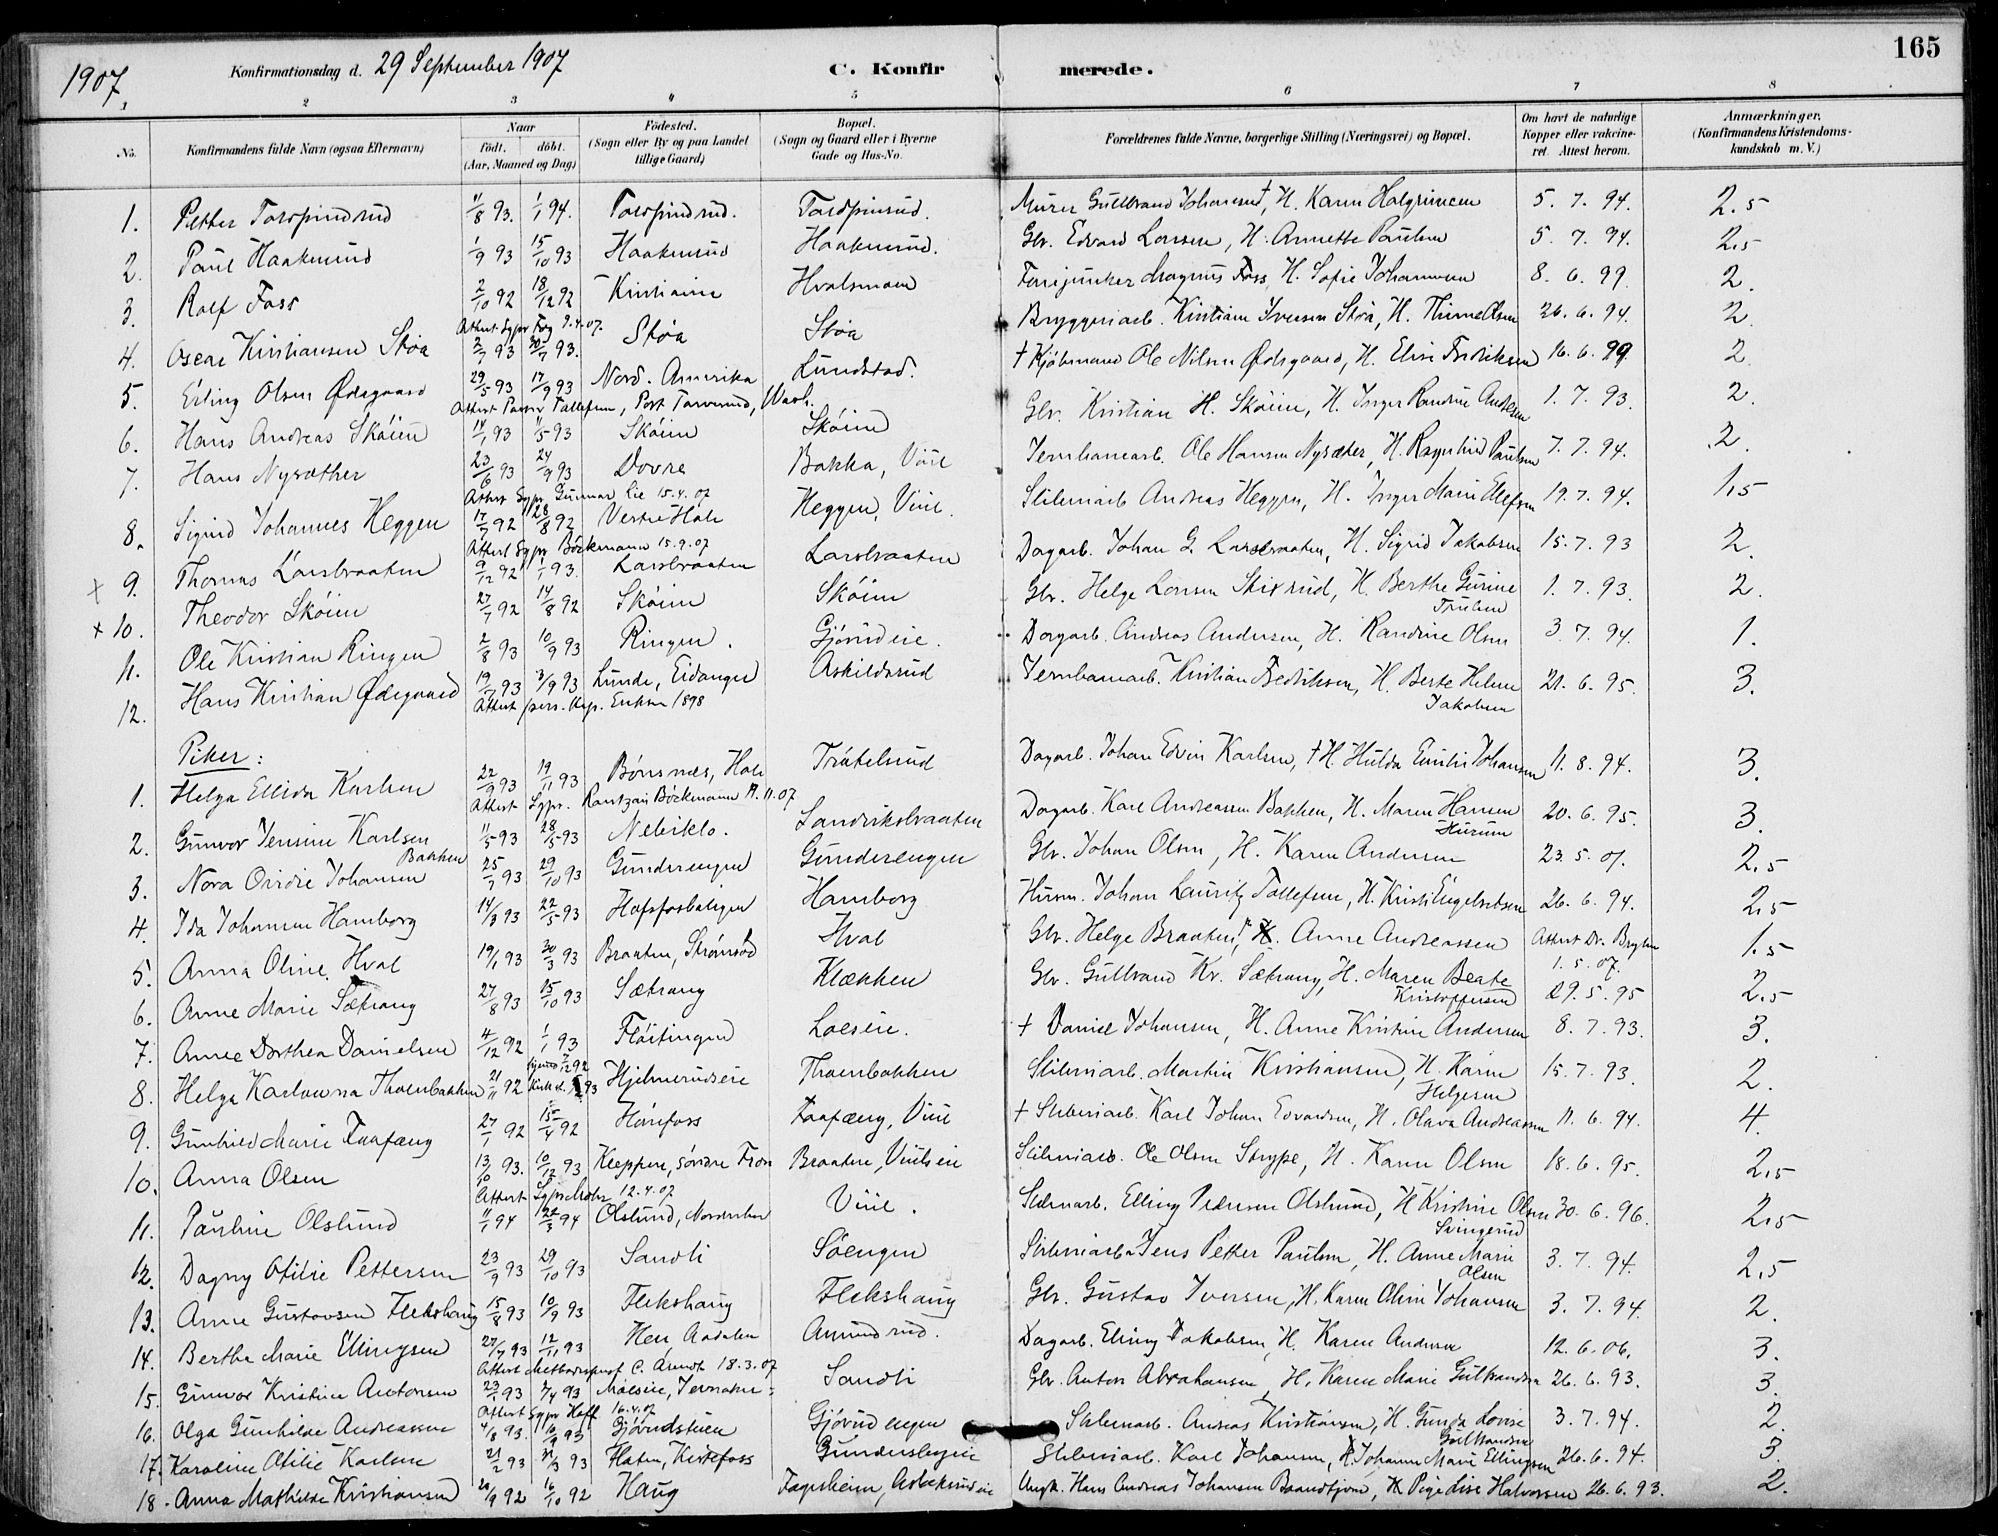 165
1907.
Konfirmationsdag d. 29 September 1907
C. Konfirmerede.
1 2 3 4 5 6 7 8
No. Konfirmandens fulde Navn (ogsaa Efternavn) Naar født. døbt. (Aar, Maaned og Dag) Fødested. (Sogn eller By og paa Landet tillige Gaard) Bopæl. (Sogn og Gaard eller i Byerne Gade og Hus-No. Forældrenes fulde Navne, borgerlige Stilling (Næringsvei) og Bopæl. Om havt de naturlige Kopper eller vakcineret. Attest herom. Anmærkninger. (Konfirmandens Kristendomskundskab m. V.)
1. Petter Torspindrud 11/8 93. 1/1 94. Torspindrud. Torspinrud. Murer Gulbrand Johansen†, H. Karen Halgrimsen 5. 7. 94. 2.5
2. Paul Haakensrud 1/9 93 15/10 93 Haakenrud Haakenrud. Gbr. Edvard Larssen, H. Annette Paulsen 5. 7. 94. 2.5
3. Rolf Foss 2/10 92 18/12 92 Kristiania Hvalsmoen Fanejunker Magnus Foss, H. Sofie Johannesen 8. 6. 99. 2.
Attest Sgpr 9.4.07.
4. Oscar Kristiansen Støa 2/7 93 30/7 93. Støa Støa Bryggeriarb. Kristian Iversen Støa, H. Olsen 26. 6. 94. 2
5. Erling Olsen Ødegaard 29/5 93 17/9 93 Nord. Amerika Lundstad. † Kjøbmand Ole Nilsen Ødegaard, H. Elise Fredriksen 16. 6. 99. 2
Attest Pastor Tollefsen, Post, Wash.
6. Hans Andreas Skøien 14/1 93 11/5 93 Skøien Skøien Gbr. Kristian H. Skøien, H. Inger Randine Andersen 1. 7. 93. 2.
7. Hans Nysæther 23/6 93 24/9 93 Dovre Bakka, Viul Jernbanearb. Ole Hansen Nysæter, H. Ragnhild Paulsen 7. 7. 94. 2.
Attest Sgpr Gunnar Lie 15.4.07
8. Sigurd Johannes Heggen 17/7 92 28/8 92 Vestre Hole Heggen, Viul. Sliberiarb. Andreas Heggen, H. Inger Marie Elefsen 19. 7. 94. 1.5
Attest Sgpr Bøckmann 15.9.07
x 9. Thomas Larsbraaten 9/12 92 1/1 93. Larsbraaten Larsbraaten Dagarb. Johan G. Larsbraaten, H. Sigrid Jakobsen 15. 7. 93 2.
x 10. Theodor Skøien 27/7 92 14/8 92 Skøien Skøien Gbr. Helge Larsen Skixrud, H. Berthe Gurine Trulsen 1. 7. 93. 2.
11. Ole Kristian Ringen 2/8 93 10/9 93 Ringen. Gjørudeie. Dagarb. Andreas Andersen, H. Randine Olsen 3. 7. 94. 1.
12. Hans Kristian Ødegaard 19/7 93 3/9 93 Lunde, Eidanger Askildsrud Jernbanearb. Kristian Fredriksen, H. Berte Helene Jakobsen 21. 6. 95. 3.
Attest Eriksen 1898
Piker:
1. Helga Ellida Karlsen 22/9 93 19/11 93 Bønsnes, Hole Trøtelsrud Dagarb. Johan Edvin Karlsen, † H. Hulda Emilie Johansen 11. 8. 94. 3.
Attest Sgpr. Rantzau Bøckmann 17.11.07
2. Gunvor Jensine Karlsen Bakken 11/5 93 28/5 93 Nebiklo. Sandviksbraaten Dagarb. Karl Andreassen Bakken, H. Maren Hansen Hurum 20. 6. 95. 3.
3. Nora Ovidie Johansen 25/7 93 29/10 93 Gunderengen Gunderengen Gbr. Johan Olsen, H. Karen Andersen 23. 5. 07. 2.5
4. Ida Johansen Hamborg 14/3 93 22/5 93 Hofsfosboligen Hamborg Husm. Johan Lauritz Tollefsen, H. Kristi Engebretsen 26. 6. 94. 2.5
5. Anna Oline Hval 19/1 93 30/3 93 Braaten, Strømsø Hval Gbr. Helge Braaten, Anne Andreassen Attest Dr. 1. 5. 07. 1.5
6. Anne Marie Sætrang 27/8 93 15/10 93 Sætrang Klækken Gbr. Gulbrand Kr. Sætrang, H. Maren Beate Kristoffersen 29. 5. 95 2.5
7. Anne Dorthea Danielsen 4/12 92 1/1 93 Fløitingen Loeseie. † Daniel Johansen, H. Anne Kristine Andersen 8. 7. 93. 3.
8. Helga Karlovna Thoenbakken 21/11 92 Hjelmerudeie Thoenbakken Sliberiarb. Martin Kristiansen, H. Karen Helgesen 15. 7. 93. 2.
9. Gunhild Marie Faafæng 27/1 92 15/4 92 Hønefoss Faafæng, Viul † Sliberiarb. Karl Johan Edvardsen, H. Olava Andreassen 11. 6. 94. 4.
10. Anna Olsen 13/10 93. 10/12 93 Kleppen, søndre Fron Braaten, Viulseie Sliberiarb. Ole Olsen Strype, H. Karen Olsen 18. 6. 95. 2.5
Attest Sgpr Mohr 12.4.07
11. Pauline Olslund 11/1 94 22/3 94 Olslund, Norderhov Viul. Sliberiarb. Elling Pedersen Olslund, H Kristine Olsen Svingerud 30. 6. 96. 2.5
12. Dagny Otilie Pettersen 23/9 93 29/10 93 Sandli Søengen Sliberiarb. Jens Petter Paulsen, H. Anne Marie Olsen 3. 7. 94. 2.5
13. Anne Gustavsen Flekshaug 15/8 93 10/9 93 Flekshaug Flekshaug Gbr. Gustav Iversen, H. Karen Oline Johansen 3. 7. 94. 2.
14. Berthe Marie Ellingsen 27/7 93 12/11 93 Hen, Aadalen Amundrud. Dagarb. Elling Jakobsen, H. Karen Andersen 12. 6. 06. 3.
Attest C. Arendt 18.3.07
15. Gunvor Kristine Antonsen 23/1 93 2/4 93 Moeseie, Jevnaker Sandli Gbr. Anton Abrahamsen, H. Karen Marie Gulbrandsen 26. 6. 93. 3.
Attest Sgpr Hoff 16.4.07
16. Olga Gunhilde Andreassen 4/8 93. 10/9 93 Gjørudstuen Gjørud engen Sliberiarb. Andreas Kristiansen, H. Gunda Lovise Gulbrandsen 3. 7. 94. 2.
17. Karoline Otilie Karlsen 21/2 93 31/3 93 Floten, Kistefoss Gunderslegeie Sliberiarb. Karl Johansen, H. Johanne Marie Ellingsen 26. 6. 94. 3.
18. Anna Mathilde Kristiansen 20/9 92 16/10 92 Haug Fagerheim, Askekrudeie Ungk. Hans Andreas Johansen Brandtjern, Pige Lise Halvorsen 26. 6. 93. 2.